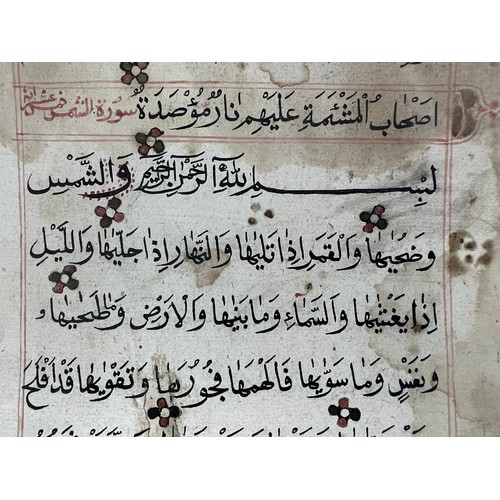 اصْحَابُ الْمَشْئَمَةِ عَلَيْهِمْ نَارٌ مُؤْصَدَةٌ سورة الشمس خمس عشر آية
بِسْمِ اللهِ الرَّحْمٰنِ الرَّحِيمِ وَالشَّمْسِ
وَضُحٰيهَا وَالْقَمَرِ اِذَا تَلٰيهَا وَالنَّهَارِ اِذَا جَلّٰيهَا وَاللَّيْلِ
اِذَا يَغْشٰيهَا وَالسَّمَاءِ وَمَا بَنٰيهَا وَالْاَرْضِ وَمَا طَحٰيهَا وَ
وَنَفْسٍ وَمَا سَوّٰيهَا فَاَلْهَمَهَا فُجُورَهَا وَتَقْوٰيهَا قَدْ اَفْلَحَ